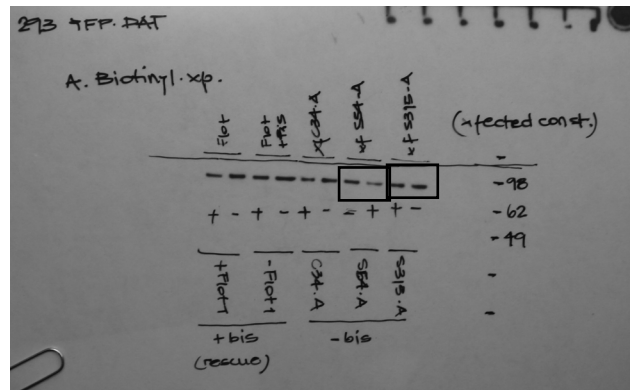 293 YFP. DAT
A. Biotinyl. xp.
Flot
Flot +Bis
xf C34-A
xf S54-A
xf S315-A
(xfected const.)
-
-98
+ - + - + - - + + -
-62
-49
+Flot1
-Flot1
C34.A
S54.A
S315.A
-
-
+bis
-bis
(rescue)